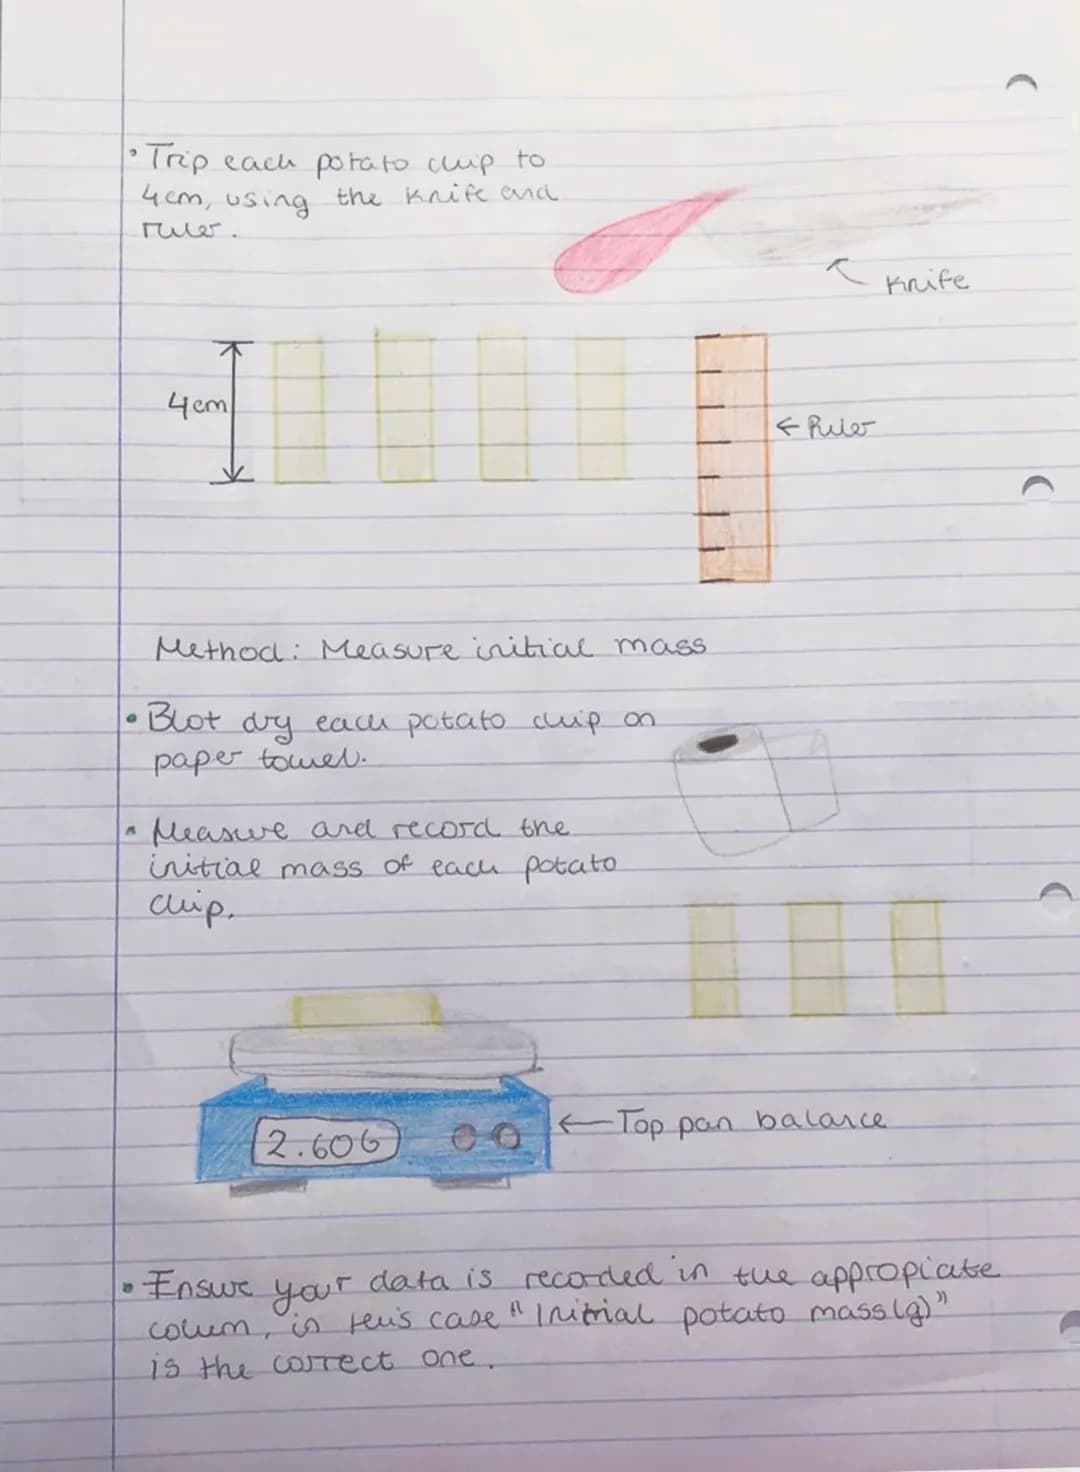 • Trip each potato chip to
4cm, using the knife and
ruler.
Knife
4cm
← Ruler
Method: Measure initial mass
• Blot dry each potato chip on
paper towel.
• Measure and record the
initial mass of each potato
chip.
2.606
← Top pan balance
• Ensure your data is recorded in the appropiate
colum, in this case "Initial potato mass(g)"
is the correct one.